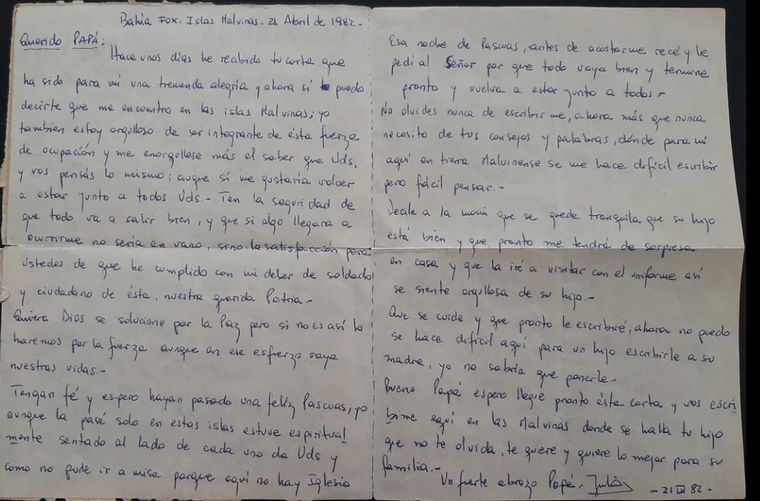 Bahia Fox. Islas Malvinas. 21 Abril de 1982.-
Querido PAPÁ:
Hace unos días he recibido tu carta que
ha sido para mi una tremenda alegria y ahora sí puedo
decirte que me encuentro en las islas Malvinas; yo
tambien estoy orgulloso de ser integrante de ésta fuerza
de ocupación y me enorgullese más el saber que Uds.
y vos pensás lo mismo; auque sí me gustaria volver
a estar junto a todos Uds.- Ten la seguridad de
que todo va a salir bien, y que si algo llegara a
ocurrirme no seria en vano, sino la satisfacción para
ustedes de que he cumplido con mi deber de soldado
y ciudadano de ésta, nuestra querida Patria.-
Quiera Dios se solucione por la Paz pero si no es así lo
haremos por la fuerza aunque en ese esfuerzo vaya
nuestras vidas.-
Tengan fé y espero hayan pasado una feliz Pascuas, yo
aunque la pasé solo en estas islas estuve espiritual
mente sentado al lado de cada uno de Uds y
como no pude ir a misa porque aquí no hay Iglesia
Esa noche de Pascuas, antes de acostarme recé y le
pedi al Señor por que todo vaya bien y termine
pronto y vuelva a estar junto a todos.-
No olvides nunca de escribirme, ahora más que nunca
necesito de tus consejos y palabras, dónde para mí
aquí en tierra Malvinense se me hace difícil escribir
pero fácil pensar.-
Decile a la mami que se quede tranquila que su hijo
está bien y que pronto me tendrá de sorpresa
en casa y que la iré a visitar con el uniforme así
se siente orgullosa de su hijo.-
Que se cuide y que pronto le escribiré, ahora no puedo
se hace dificil aquí para un hijo escribirle a su
madre, yo no sabria que ponerle.-
Bueno Papá espero llegue pronto ésta carta y vos escri
bime aquí en las Malvinas donde se halla tu hijo
que no te olvida, te quiere y quiere lo mejor para su
familia.-
Un fuerte abrazo Papá. Julio
- 21 IV 82 -